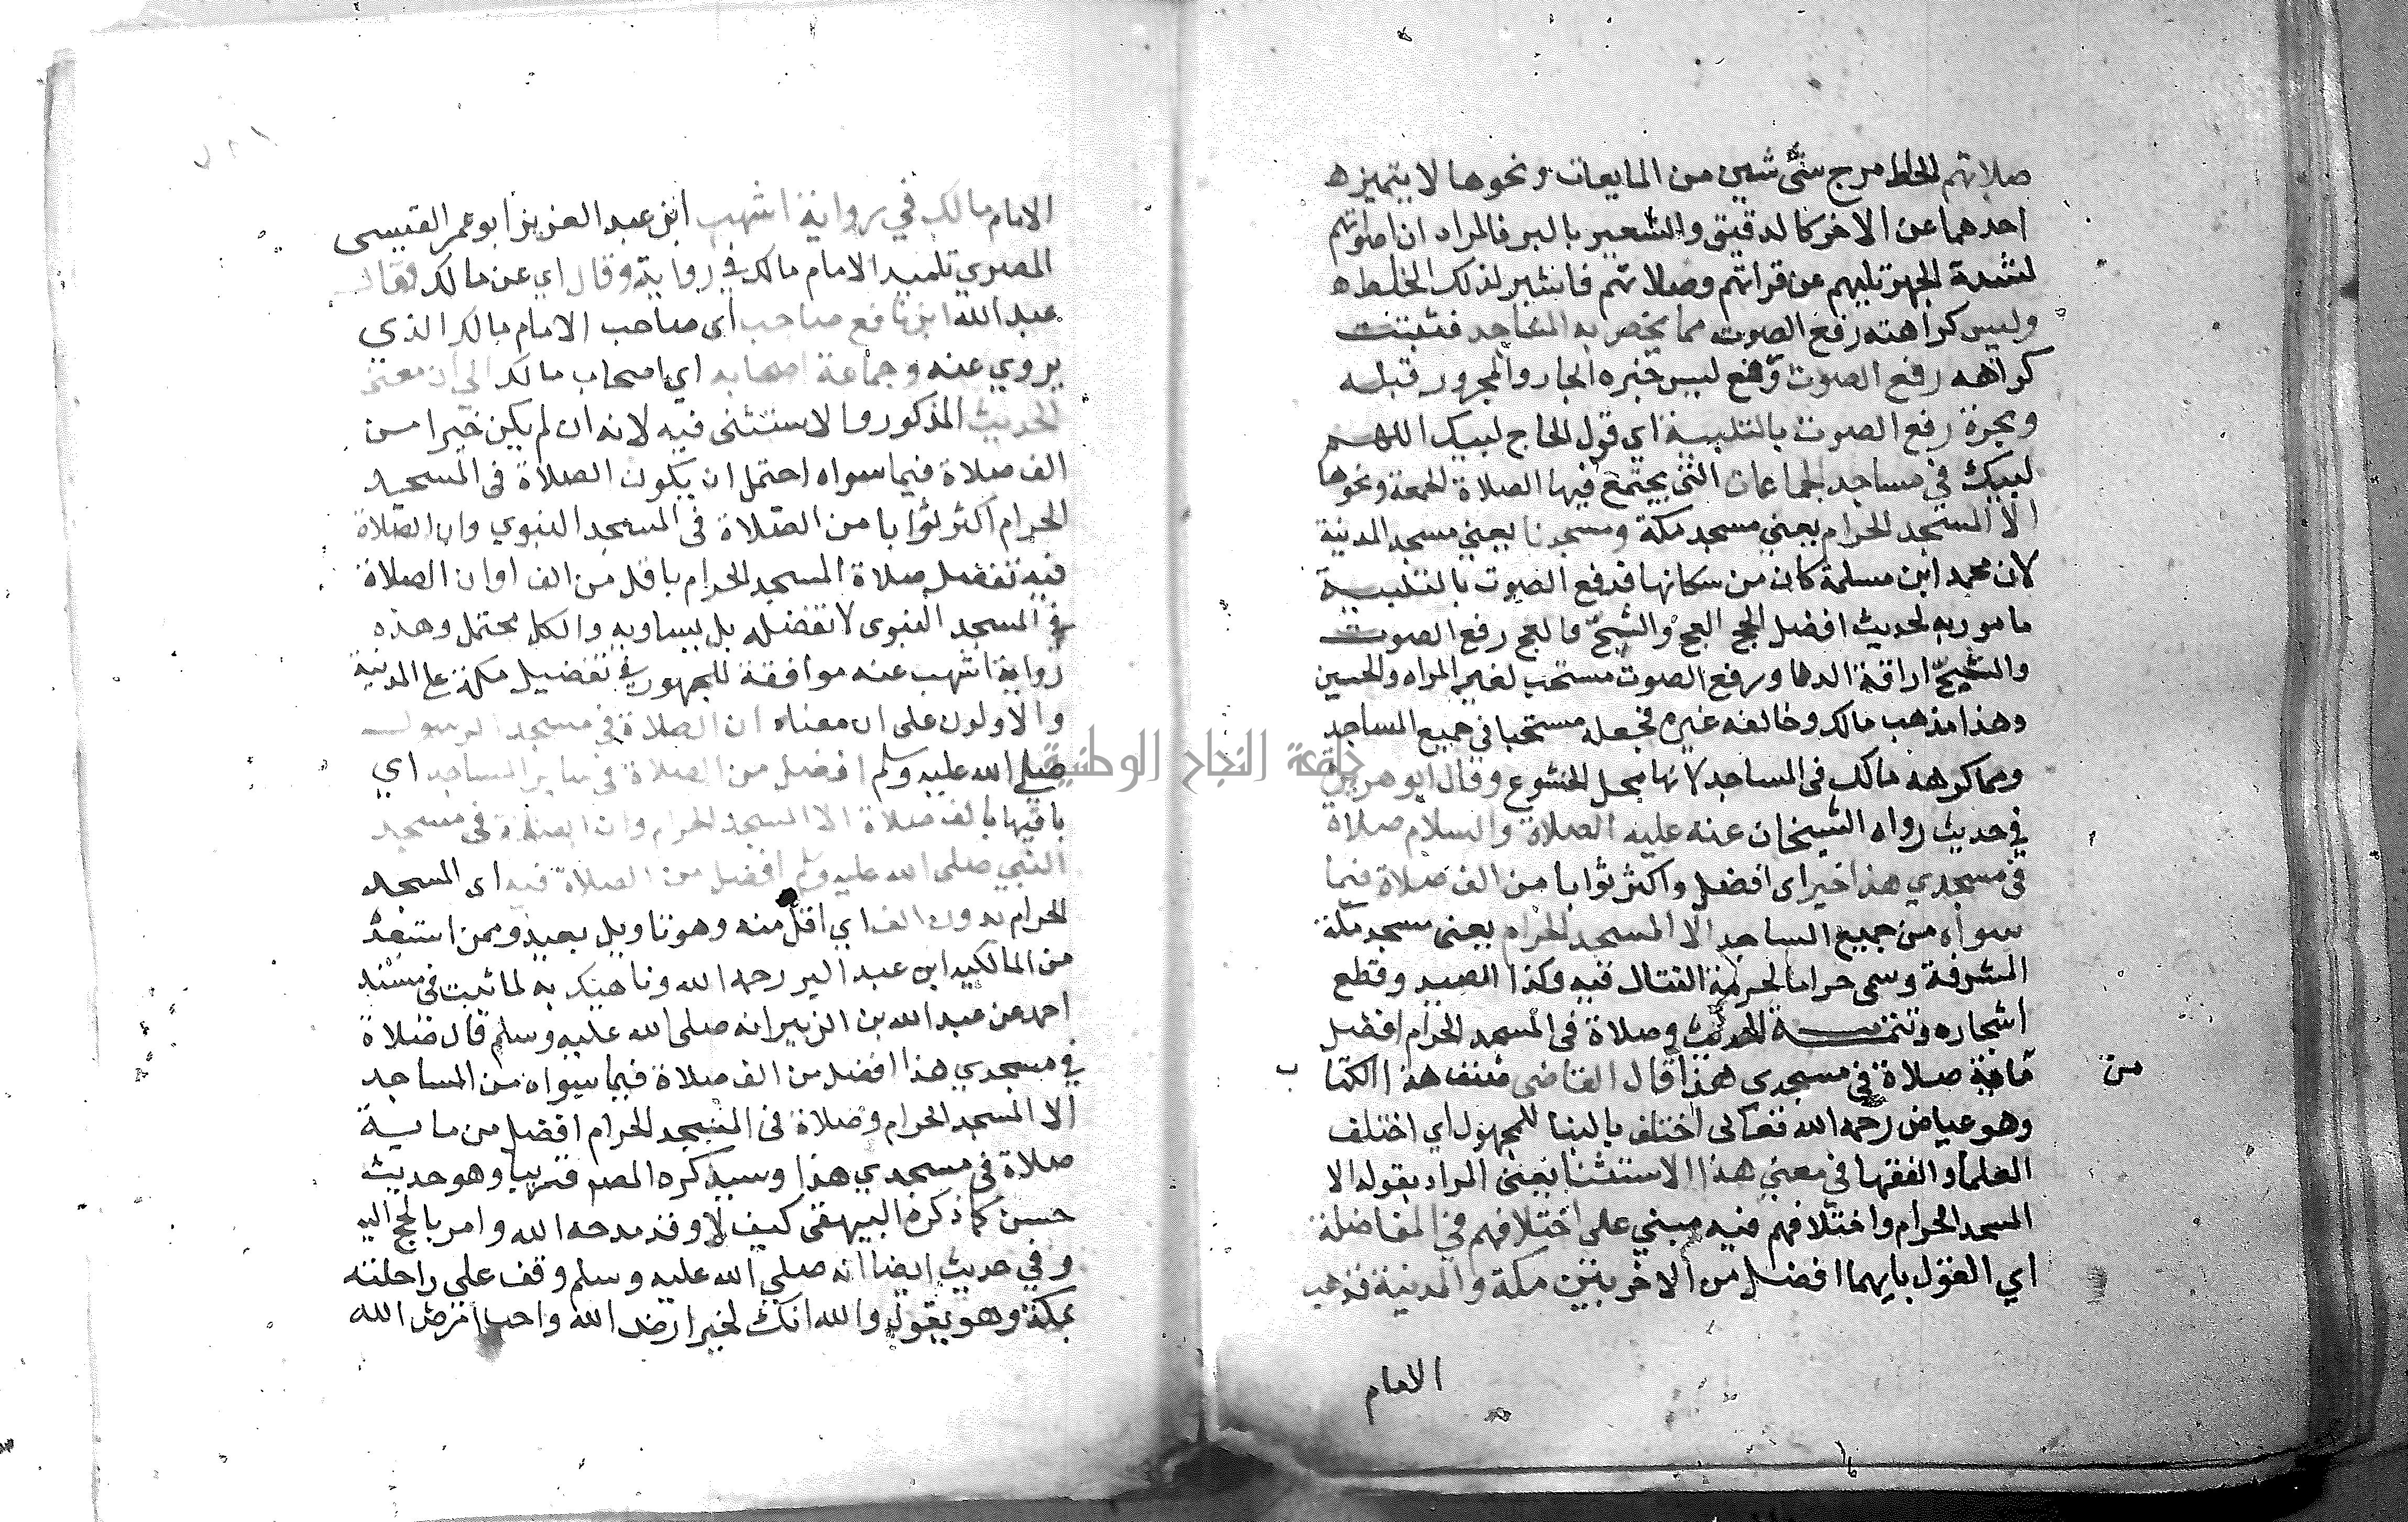 صلاتهم الخلط مرج شئ شيئين من المايعات ونحوها لا يتميزه
احدهما عن الاخر كالدقيق والشعير بالبر فالمراد ان اصواتهم
لشدة الجهر تلهيهم عن قراتهم وصلاتهم فانشير لذلك الخلط ه
وليس كراهته رفع الصوت مما يخص به المساجد فثبتت
كراهه رفع الصوت وقع ليس خبره الجار والمجرور قبله
ويجرة رفع الصوت بالتلبية اي قول الحاج لبيك اللهم
لبيك في مساجد الجماعات التي يجتمع فيها الصلاة الجمعة ونحوها
الا المسجد الحرام يعني مسجد مكة ومسجدنا يعني مسجد المدينة
لان محمد ابن مسلمة كان من سكانها فدفع الصوت بالتلبية
مامور به لحديث افضل الحج العج والثج فالعج رفع الصوت
والثج اراقة الدما ورفع الصوت مستحب لغير المراه والخسين
وهذا مذهب مالك وخالفه غيره فجعله مستحبا في جميع المساجد
ومما كرهه مالك في المساجد لانها محل الخشوع وقال ابو هريرة
في حديث رواه الشيخان عنه عليه الصلاة والسلام صلاة
في مسجدي هذا خير اى افضل واكثر ثوابا من الف صلاة فيما
سواه من جميع المساجد الا المسجد الحرام يعنى مسجد مكة
المشرفة وسمى حراما لحرمة القتال فيه وكذا الصيد وقطع
اشجاره وتتمة الحديث وصلاة فى المسجد الحرام افضل
من ماية صلاة في مسجدى هذا قال القاضى مصنف هذا الكتاب
وهو عياض رحمه الله تعالى اختلف بالبنا للمجهول اي اختلف
العلما والفقها في معني هذا الاستثنا يعنى المراد بقوله الا
المسجد الحرام واختلافهم فيه مبني على اختلافهم في المفاضلة
اي القول بايهما افضل من الاخر بين مكة والمدينة فذهب
الامام
الامام مالك في رواية اشهب ابن عبد العزيز ابو عمر القيسى
المصري تلميذ الامام مالك في رواية وقال اي عن مالك وقال
عبد الله ابن نافع صاحب اى صاحب الامام مالك الذي
يروي عنه وجماعة اصحابه اي اصحاب مالك الى ان معنى
الحديث المذكور والاستثنى فيه لانه ان لم يكن خيرا من
الف صلاة فيما سواه احتمل ان يكون الصلاة في المسجد
الحرام اكثر ثوابا من الصلاة في المسجد النبوي وان الصلاة
فيه تفضل صلاة المسجد الحرام باقل من الف اوان الصلاة
في المسجد النبوى لا تفضله بل يساويه والكل محتمل وهذه
رواية اشهب عنه موافقة للجمهور في تفضيل مكة على المدينة
والاولون على ان معناه ان الصلاة في مسجد الرسول
صلى الله عليه وسلم افضل من الصلاة في ساير المساجد اي
باقيها بالف صلاة الا المسجد الحرام وان الصلاة في مسجد
النبي صلى الله عليه وسلم افضل من الصلاة فيه اى المسجد
الحرام بدون الف اي اقل منه وهو تاويل بعيد وممن استبعده
من المالكيه ابن عبد البر رحمه الله وناهيك به لما ثبت في مسند
احمد عن عبد الله بن الزبير انه صلى الله عليه وسلم قال صلاة
في مسجدي هذا افضل من الف صلاة فيما سواه من المساجد
الا المسجد الحرام وصلاة فى المسجد الحرام افضل من ماية
صلاة فى مسجدي هذا وسيذكره المص قريبا وهو حديث
حسن كما ذكره البيهقى كيف لا وقد مدحه الله وامر بالحج اليه
وفي حديث ايضا انه صلى الله عليه وسلم وقف على راحلته
بمكة وهو يقول والله انك لخير ارض الله واحب ارض الله
جامعة النجاح الوطنية